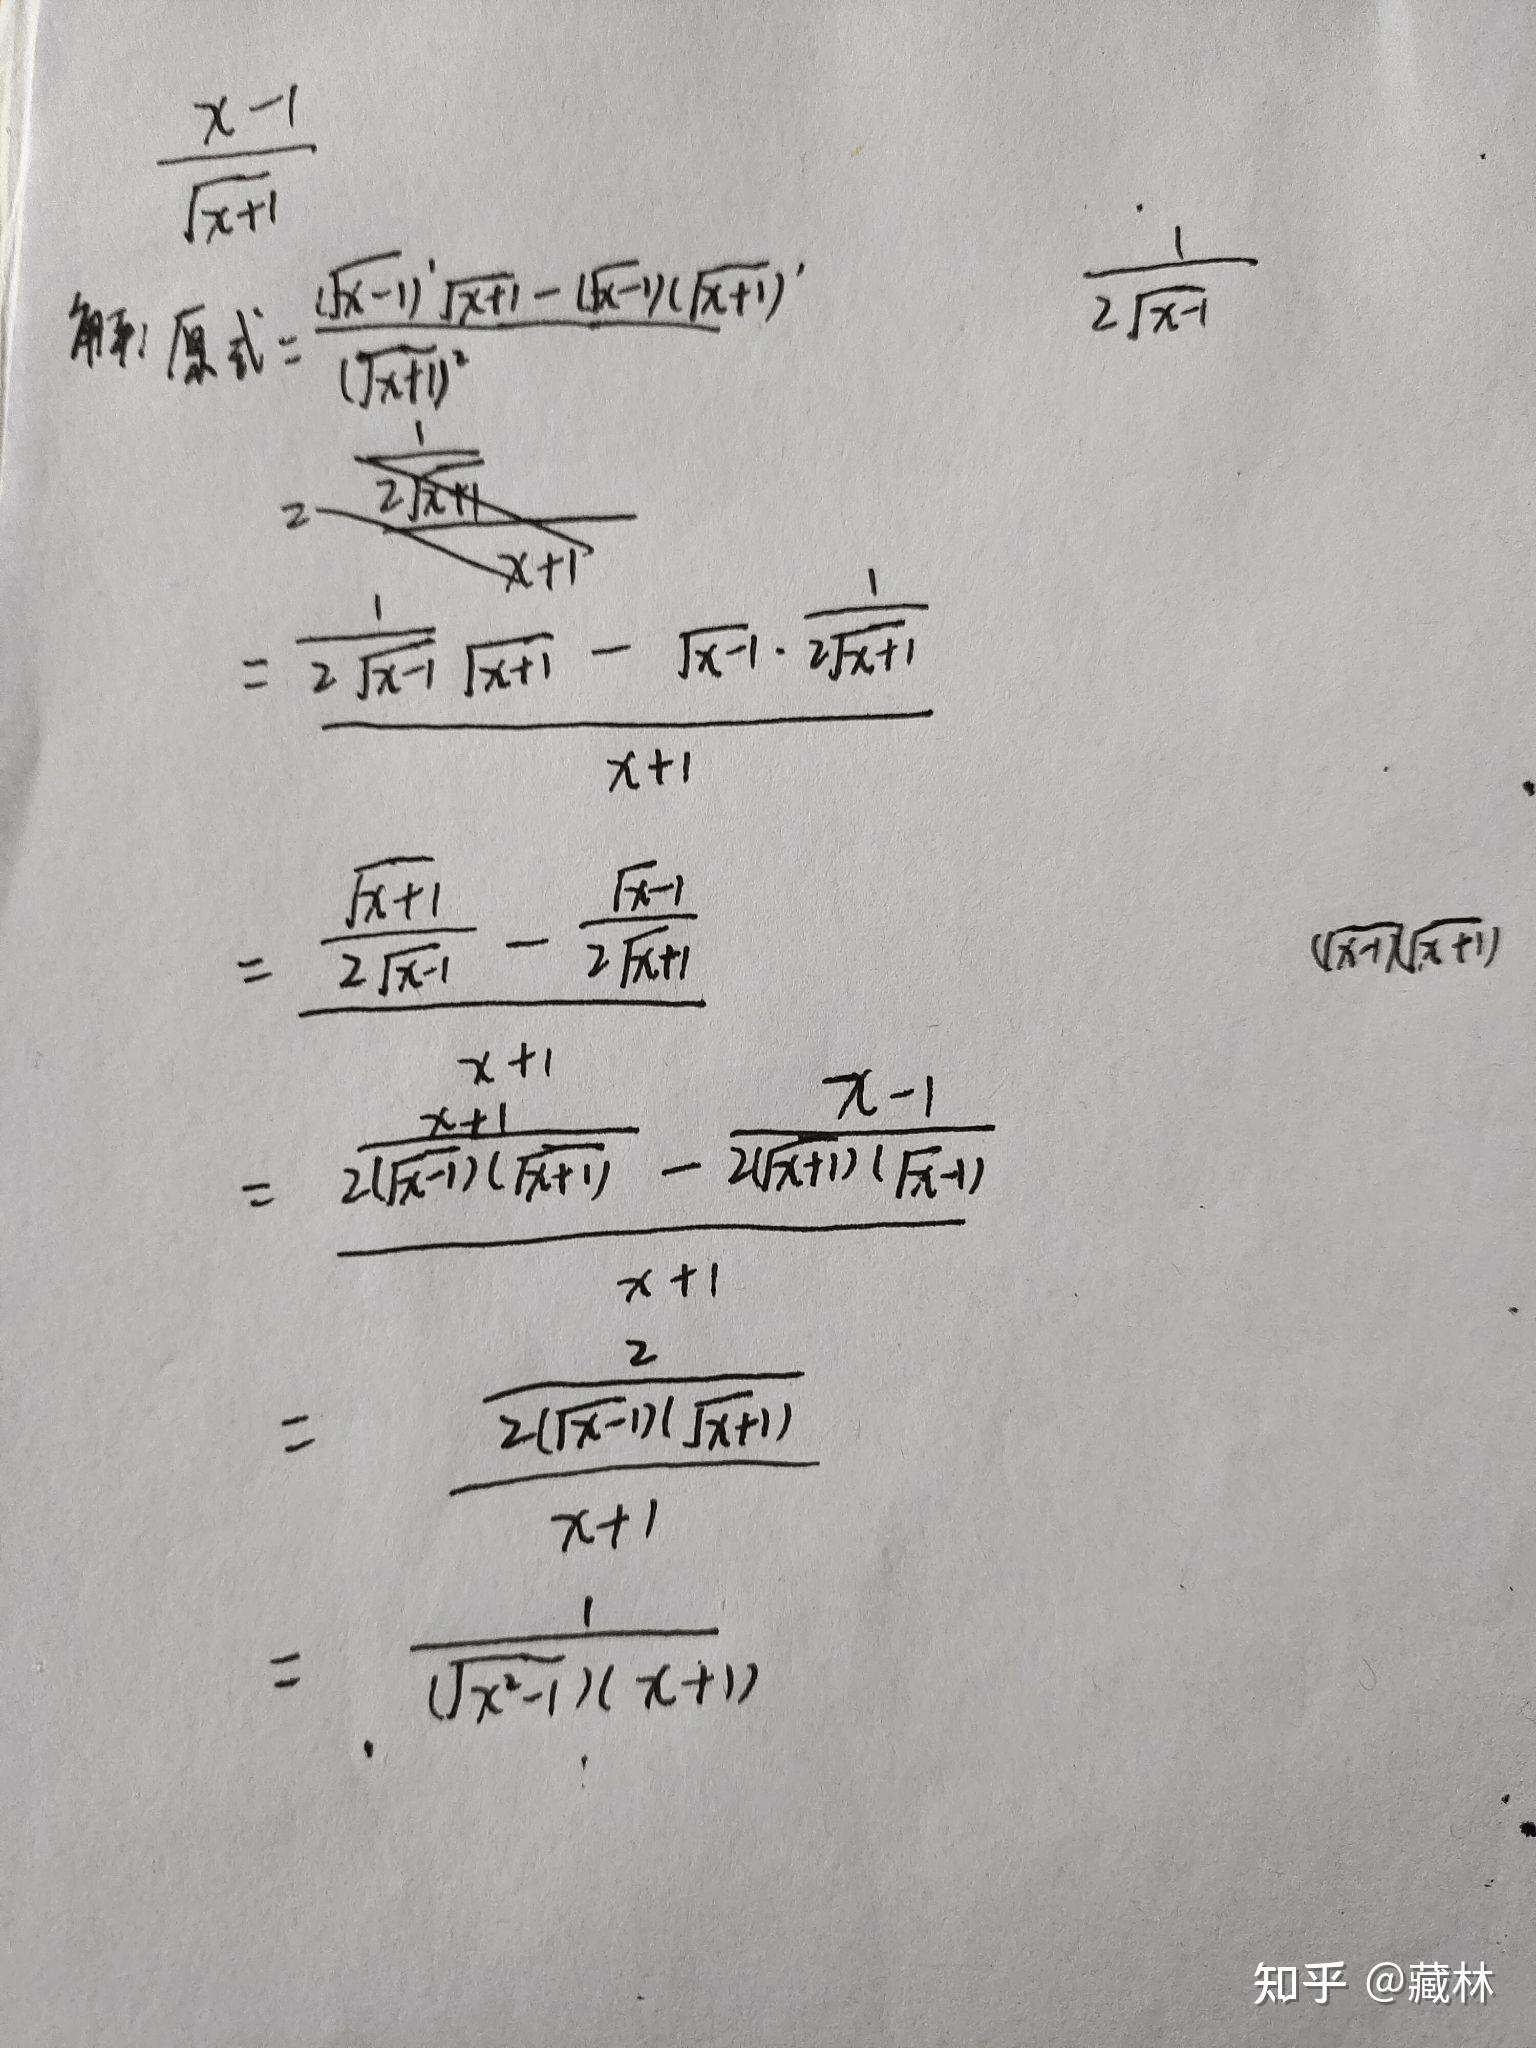 x-1
√x+1
解:原式= (√x-1)'√x+1-(√x-1)(√x+1)'
(√x+1)²
1
2√x-1
1
= 2√x+1
x+1
= 1/2√x-1 √x+1 - √x-1·1/2√x+1
x+1
= √x+1/2√x-1 - √x-1/2√x+1
x+1
(√x-1)(√x+1)
= x+1/2(√x-1)(√x+1) - x-1/2(√x+1)(√x-1)
x+1
2
= 2(√x-1)(√x+1)
x+1
1
= (√x²-1)(x+1)
知乎 @藏林